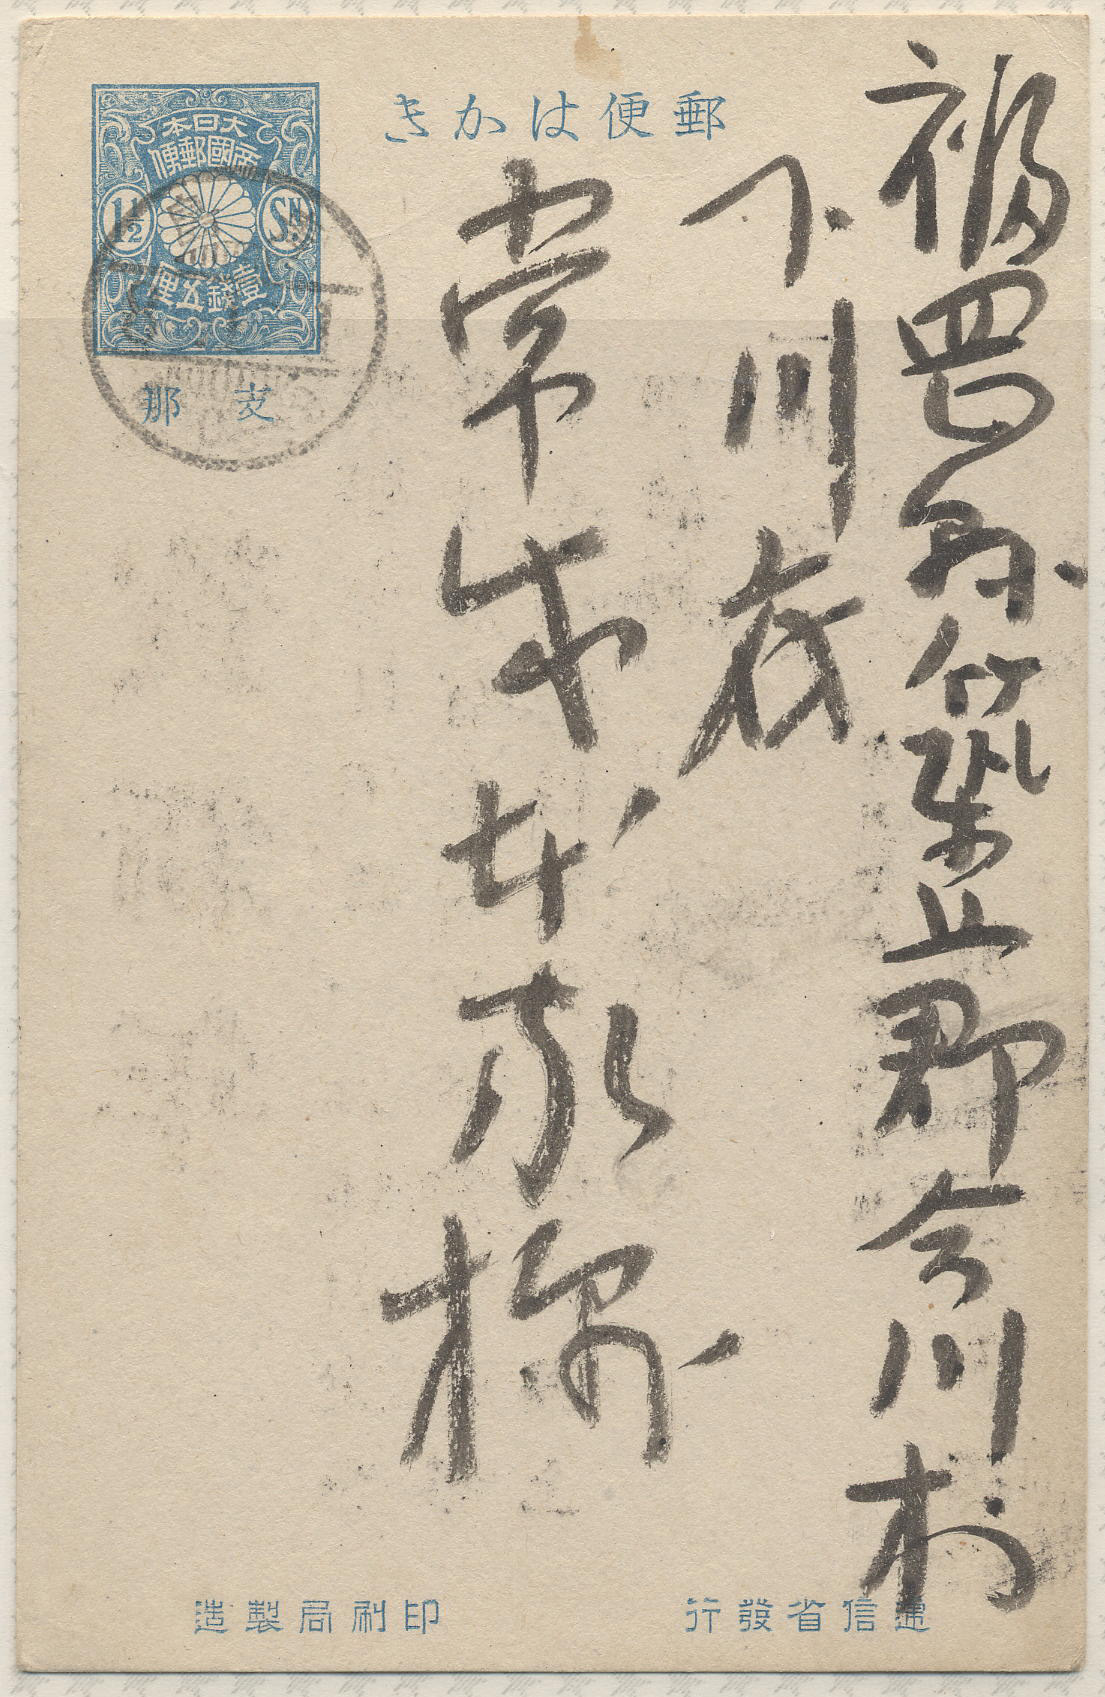 郵便はかき
大日本
帝國郵便
1½ SN.
壹錢五厘
支那
福岡縣筑上郡今川村
下川底
常成
様
逓信省發行
印刷局製造